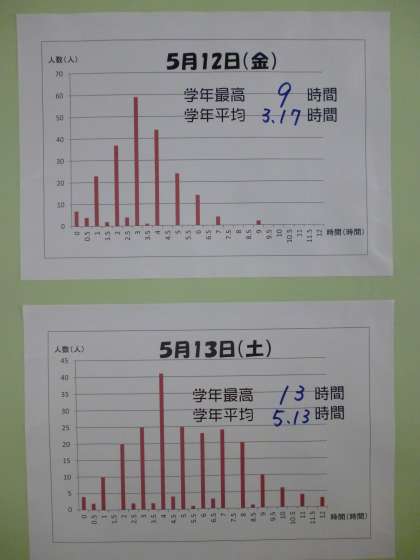 5月12日(金)
人数(人)
学年最高 9 時間
学年平均 3.17 時間
70
60
50
40
30
20
10
0
0 0.5 1 1.5 2 2.5 3 3.5 4 4.5 5 5.5 6 6.5 7 7.5 8 8.5 9 9.5 10 10.5 11 11.5 12 時間(時間)
5月13日(土)
人数(人)
学年最高 13 時間
学年平均 5.13 時間
45
40
35
30
25
20
15
10
5
0
0 0.5 1 1.5 2 2.5 3 3.5 4 4.5 5 5.5 6 6.5 7 7.5 8 8.5 9 9.5 10 10.5 11 11.5 12 時間(時間)